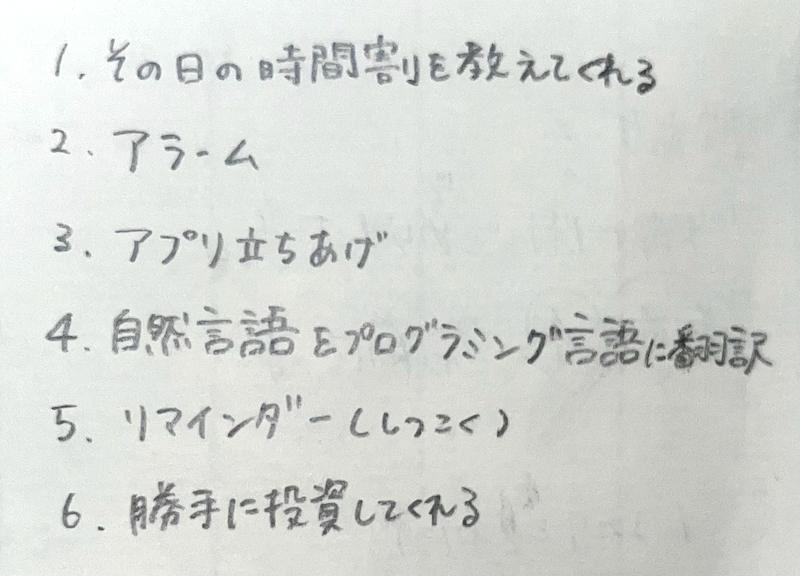 1. その日の時間割を教えてくれる
2. アラーム
3. アプリ立ちあげ
4. 自然言語をプログラミング言語に翻訳
5. リマインダー(しつこく)
6. 勝手に投資してくれる